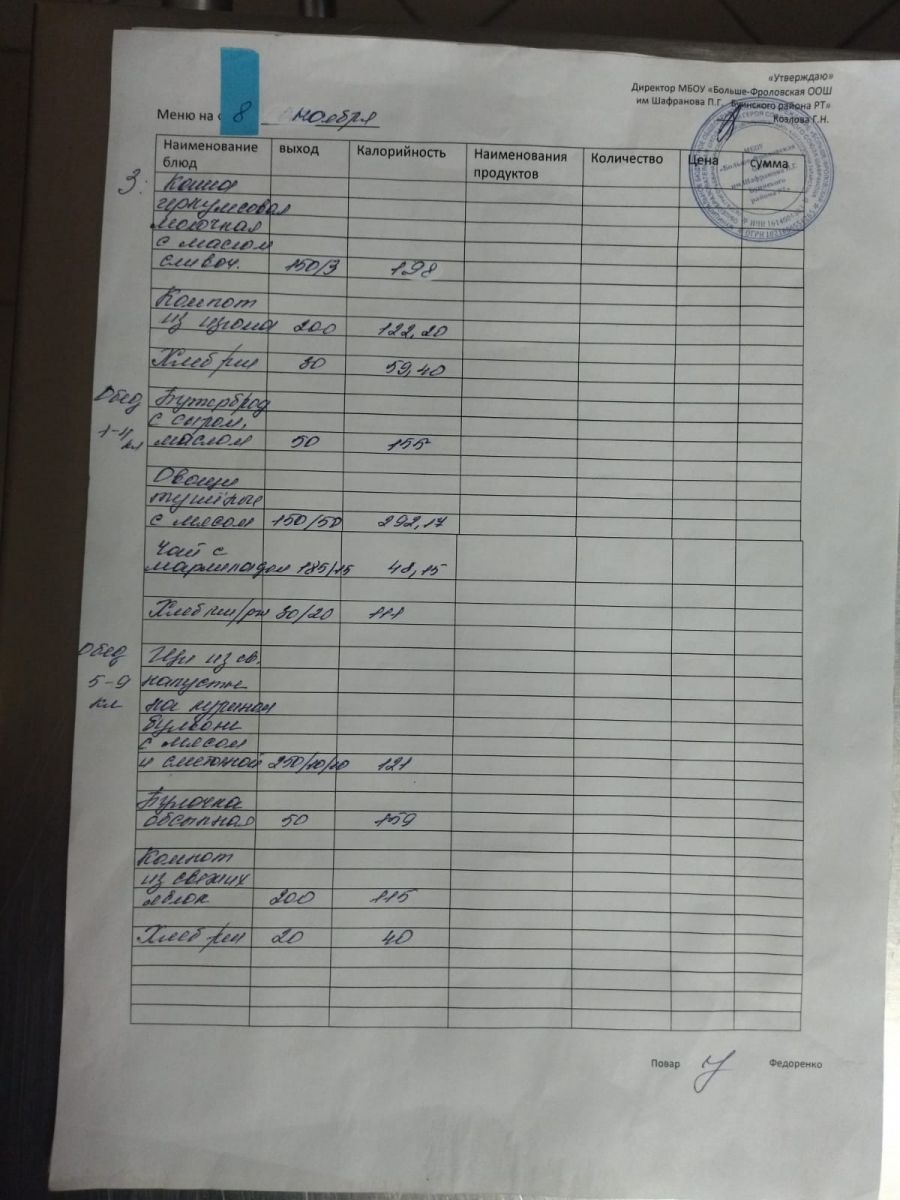 «Утверждаю»
Директор МБОУ «Больше-Фроловская ООШ
им Шафранова П.Г., Буинского района РТ»
Козлова Г.Н.
Меню на 8 ноября
Наименование блюд выход Калорийность Наименования продуктов Количество Цена сумма
З: Каша
геркулесовая
молочная
с маслом
сливоч. 150/3 198
Компот
из изюма 200 122,20
Хлеб 30 59,40
Обед Бутерброд
1-4 с сыром,
кл маслом 50 155
Овощи
тушёные
с мясом 150/50 292,17
Чай с
мармеладом 185/15 48,15
Хлеб пш/рж 30/20 111
Обед Щи из св.
5-9 капусты
кл на курином
бульоне
с мясом
и сметаной 250/10/10 121
Булочка
обсыпная 50 159
Компот
из свежих
яблок 200 115
Хлеб 20 40
Повар Федоренко